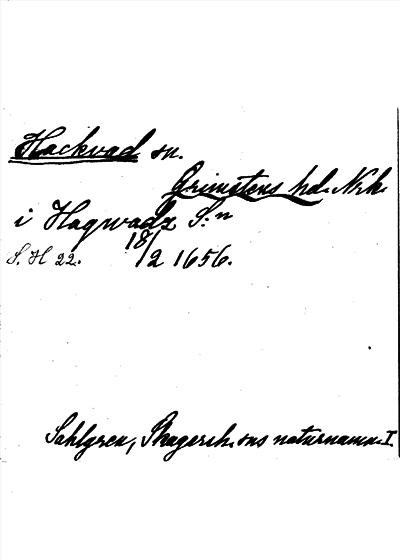 Hackvad sn.
Grimstens hd. Nrk.
i Hagwadz S:n
S. H 22. 18/2 1656.
Sahlgren, Skagersh. sns naturnamn I.